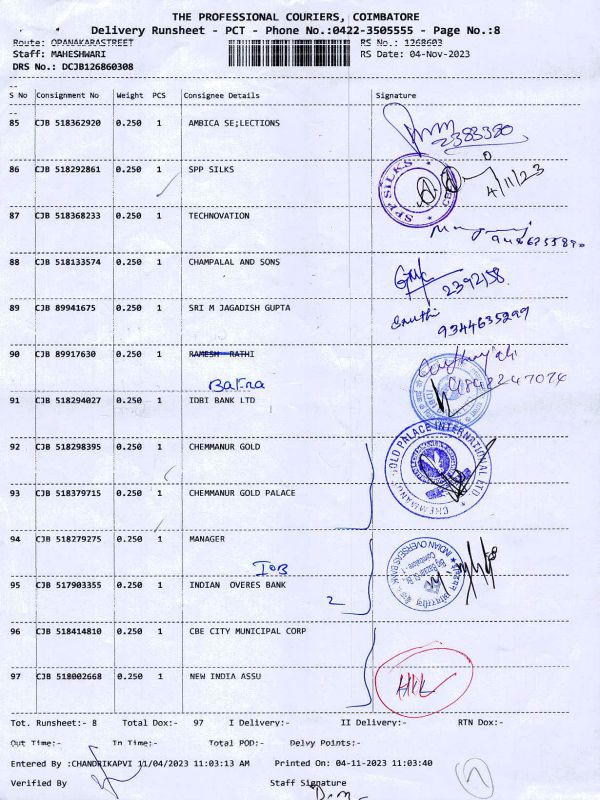 THE PROFESSIONAL COURIERS, COIMBATORE
Delivery Runsheet - PCT - Phone No.:0422-3505555 - Page No.:8
Route: OPANAKARASTREET RS No.: 1268603
Staff: MAHESHWARI RS Date: 04-Nov-2023
DRS No.: DCJB126860308
S No Consignment No Weight PCS Consignee Details Signature
85 CJB 518362920 0.250 1 AMBICA SE;LECTIONS
2383320
86 CJB 518292861 0.250 1 SPP SILKS
SPP SILKS
4/11/23
87 CJB 518368233 0.250 1 TECHNOVATION
88 CJB 518133574 0.250 1 CHAMPALAL AND SONS
2392158
89 CJB 89941675 0.250 1 SRI M JAGADISH GUPTA
Sruthi
9344635299
90 CJB 89917630 0.250 1 RAMESH RATHI
91 CJB 518294027 0.250 1 IDBI BANK LTD
92 CJB 518298395 0.250 1 CHEMMANUR GOLD
93 CJB 518379715 0.250 1 CHEMMANUR GOLD PALACE
CHEMMANUR GOLD PALACE INTERNATIONAL LTD
94 CJB 518279275 0.250 1 MANAGER
IOB
INDIAN OVERSEAS BANK
95 CJB 517903355 0.250 1 INDIAN OVERES BANK
2
96 CJB 518414810 0.250 1 CBE CITY MUNICIPAL CORP
97 CJB 518002668 0.250 1 NEW INDIA ASSU
Tot. Runsheet:- 8 Total Dox:- 97 I Delivery:- II Delivery:- RTN Dox:-
Out Time:- In Time:- Total POD:- Delvy Points:-
Entered By :CHANDRIKAPVI 11/04/2023 11:03:13 AM Printed On: 04-11-2023 11:03:40
Verified By Staff Signature